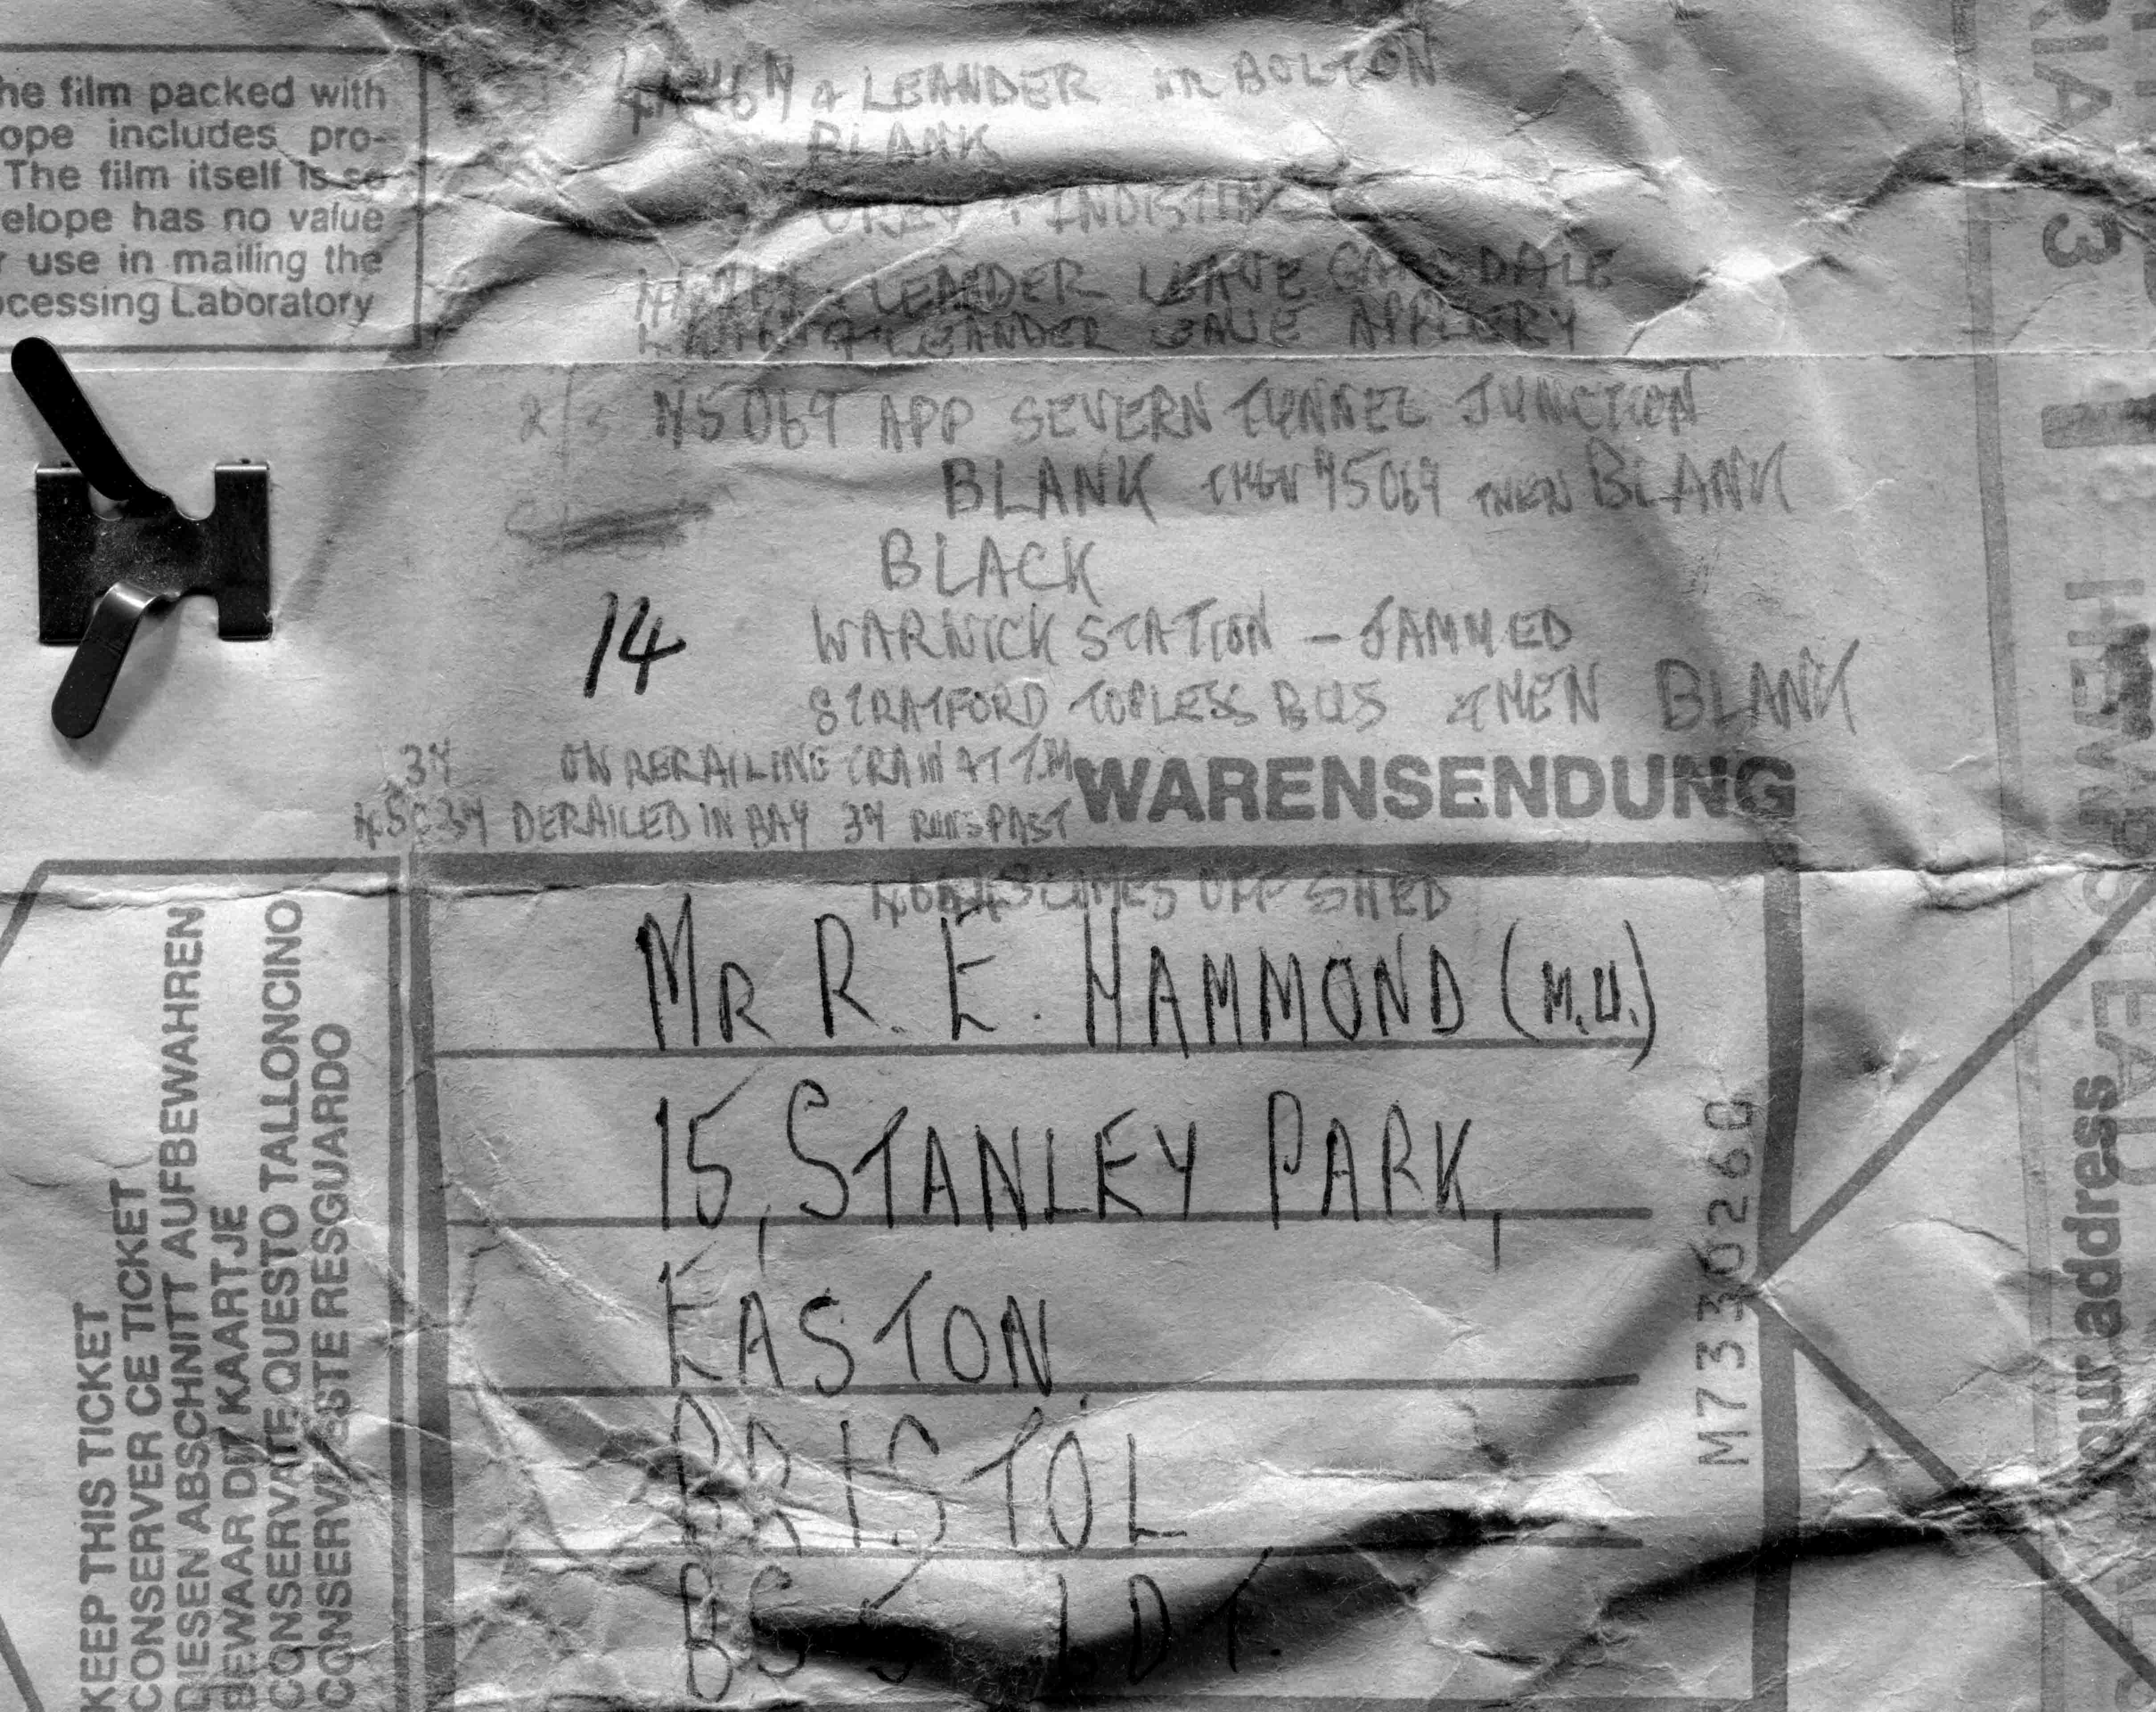 he film packed with
ope includes pro-
The film itself is so
elope has no value
r use in mailing the
ocessing Laboratory
4 LEANDER NR BOLTON
BLANK
GREY : INDISTINCT
LEANDER LEAVE GARSDALE
LEANDER LEAVE APPLEBY
45069 APP SEVERN TUNNEL JUNCTION
BLANK THEN 45069 THEN BLANK
BLACK
14 WARWICK STATION - JAMMED
STRATFORD TOPLESS BUS THEN BLANK
34 ON RERAILING TRAIN AT T.M
DERAILED IN BAY 34 RUNS PAST
WARENSENDUNG
COMES OFF SHED
MR R. E. HAMMOND (M.U.)
15, STANLEY PARK,
EASTON
BRISTOL
BS5 1DT.
M7330260
KEEP THIS TICKET
CONSERVER CE TICKET
DIESEN ABSCHNITT AUFBEWAHREN
BEWAAR DIT KAARTJE
CONSERVATE QUESTO TALLONCINO
CONSERVE ESTE RESGUARDO
RIA 3
HEMPSTEAD
our address